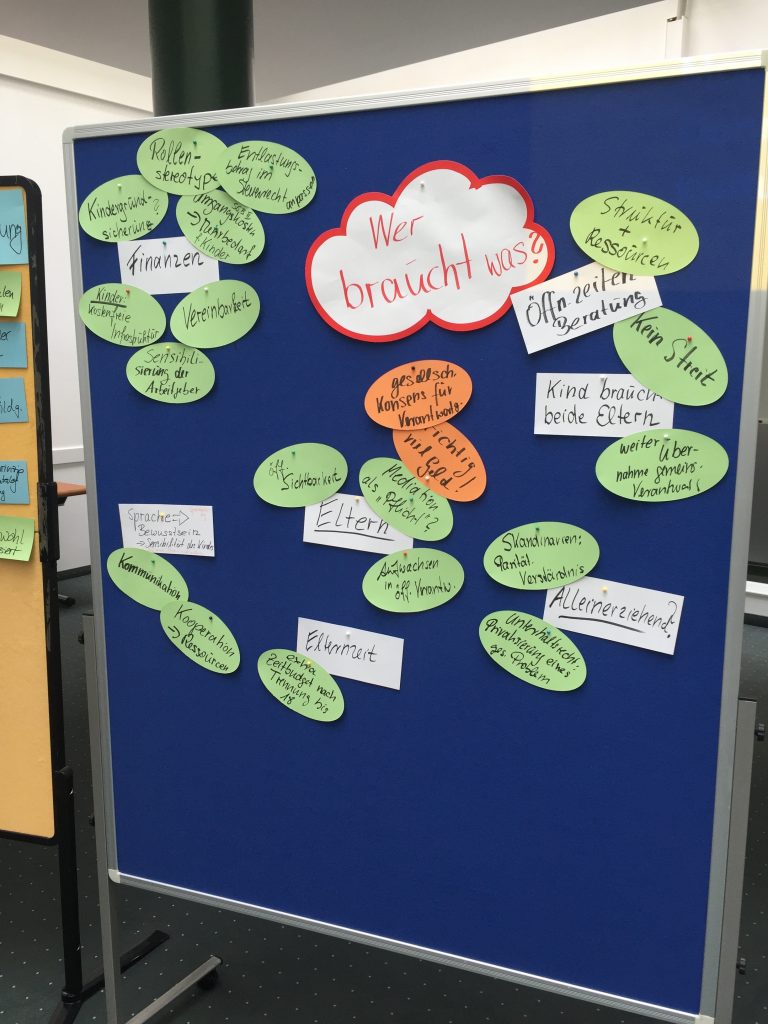 Wer
braucht was?
Rollen-
stereotype
Entlastungs-
betrag im
Steuerrecht
anpassen
Kindergrund-
sicherung?
Umgangskosten
→ Mehrbedarf
f. Kinder
Finanzen
Kinder:
kostenfreie
Infrastruktur
Vereinbarkeit
Sensibili-
sierung der
Arbeitgeber
Struktur
+
Ressourcen
Öffn.zeiten
Beratung
Kein Streit
Kind brauch
beide Eltern
weiter Über-
nahme gemeins.
Verantwort.
gesellsch.
Konsens für
Verantwortg.
ichtig
Geld!
öff.
Sichtbarkeit
Mediation
als „Pflicht“?
Eltern
Aufwachsen
in öff. Verantw.
Sprache →
Bewusstsein
→ Sensibilität
Kommunikation
Kooperation
→ Ressourcen
Elternzeit
extra
Zeitbudget nach
Trennung bis
18
Skandinavien:
Parität.
Verständnis
Alleinerziehend?
Unterhaltsrecht:
Privatisierung eines
ges. Problem